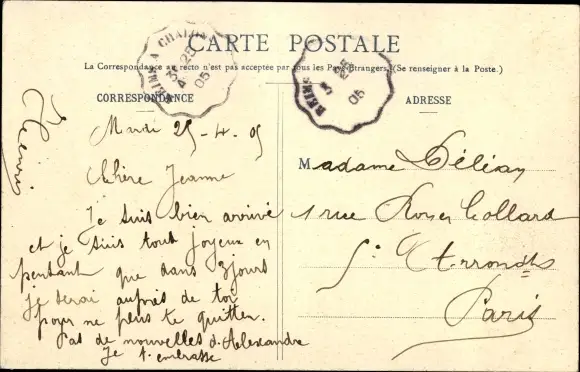 CARTE POSTALE
La Correspondance au recto n'est pas acceptée par tous les Pays étrangers. (Se renseigner à la Poste.)
CORRESPONDANCE
ADRESSE
REIMS A CHALONS
25
4
05
REIMS
25
05
Mardi 25-4-05
Chère Jeanne
Je suis bien arrivé
et je suis tout joyeux en
pensant que dans 3 jours
je serai auprès de toi
pour ne plus te quitter.
Pas de nouvelles d'Alexandre
Je t'embrasse
Henri
Madame
1 rue Royer Collard
5e Arrondts
Paris